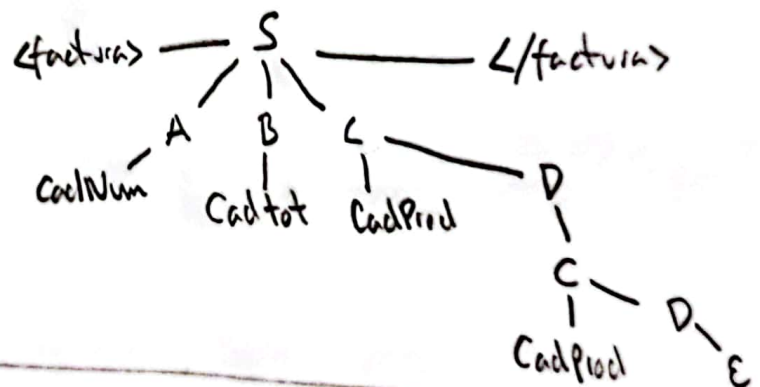 <factura> S </factura>
A B C
CadNum Cadtot CadProd D
C D
CadProd ε